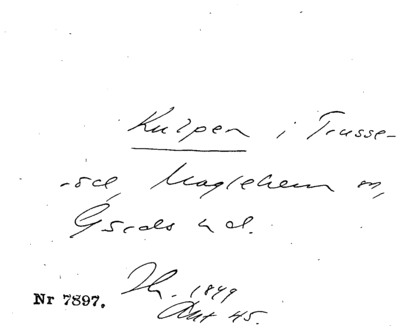 Knipen i Trusse-
-röd, Maglehem sn,
Gärds hd.
Nr 7897. Th. 1849
Akt 45.